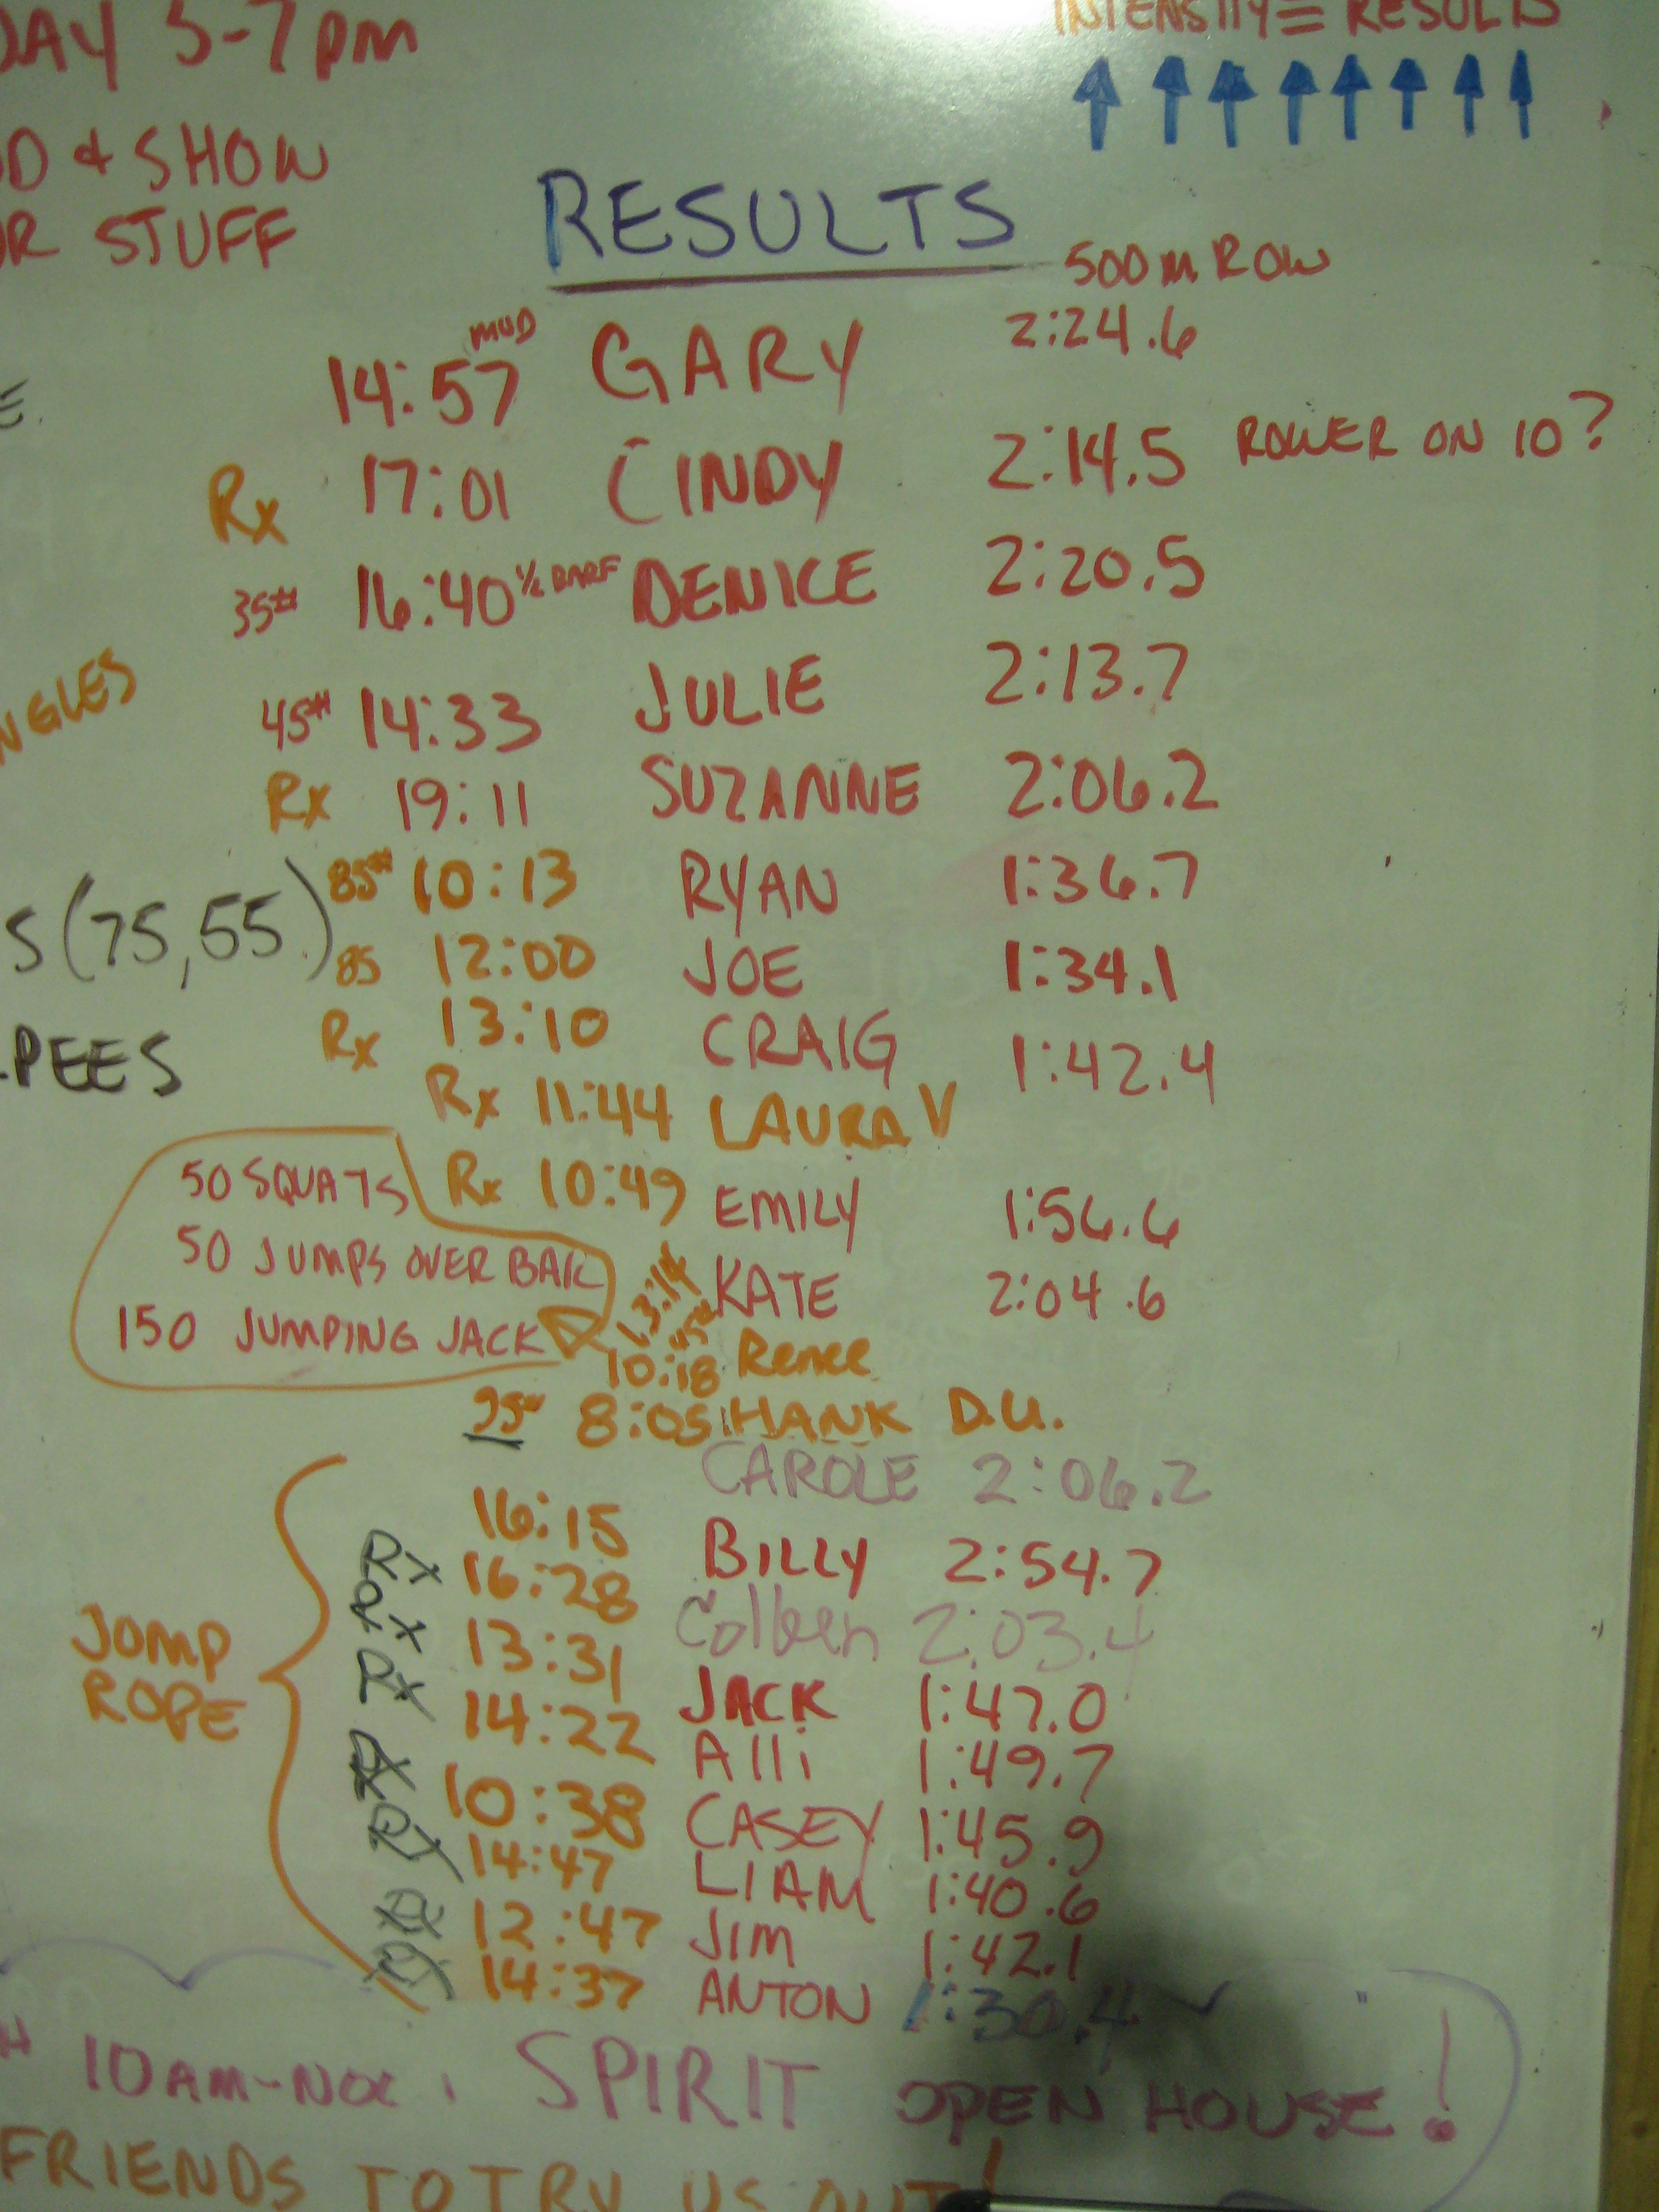 DAY 5-7pm
INTENSITY = RESULTS
D & SHOW
OR STUFF
RESULTS
500m ROW
14:57 MUD GARY 2:24.6
Rx 17:01 CINDY 2:14.5 ROWER ON 10?
35# 16:40 1/2 BARF DENICE 2:20.5
NGLES
45# 14:33 JULIE 2:13.7
Rx 19:11 SUZANNE 2:06.2
S (75,55)
85# 10:13 RYAN 1:36.7
85 12:00 JOE 1:34.1
PEES
Rx 13:10 CRAIG 1:42.4
Rx 11:44 LAURA V
50 SQUATS
Rx 10:49 EMILY 1:56.6
50 JUMPS OVER BAR
13:14 45# KATE 2:04.6
150 JUMPING JACK
10:18 Renee
95# 8:05 HANK D.U.
CAROLE 2:06.2
JUMP ROPE
16:15
Rx 16:28 BILLY 2:54.7
Rx 13:31 Colleen 2:03.4
Rx 14:22 JACK 1:47.0
Rx 10:38 Alli 1:49.7
Rx 14:47 CASEY 1:45.9
LIAM 1:40.6
Rx 12:47 JIM 1:42.1
Rx 14:37 ANTON 1:30.4
10AM-NOON SPIRIT OPEN HOUSE!
FRIENDS TO TRY US OUT!